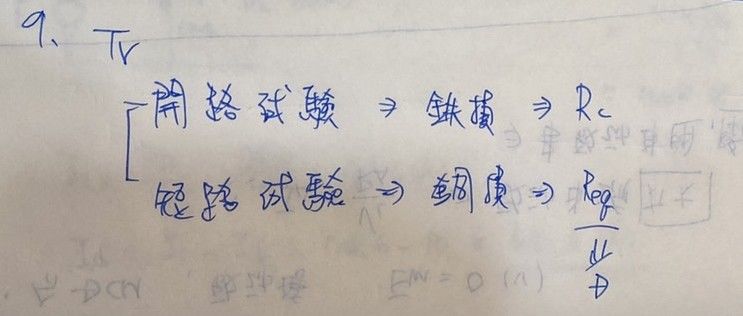 9. Tr
開路試驗 ⇒ 鉄損 ⇒ Rc
短路試驗 ⇒ 銅損 ⇒ Req